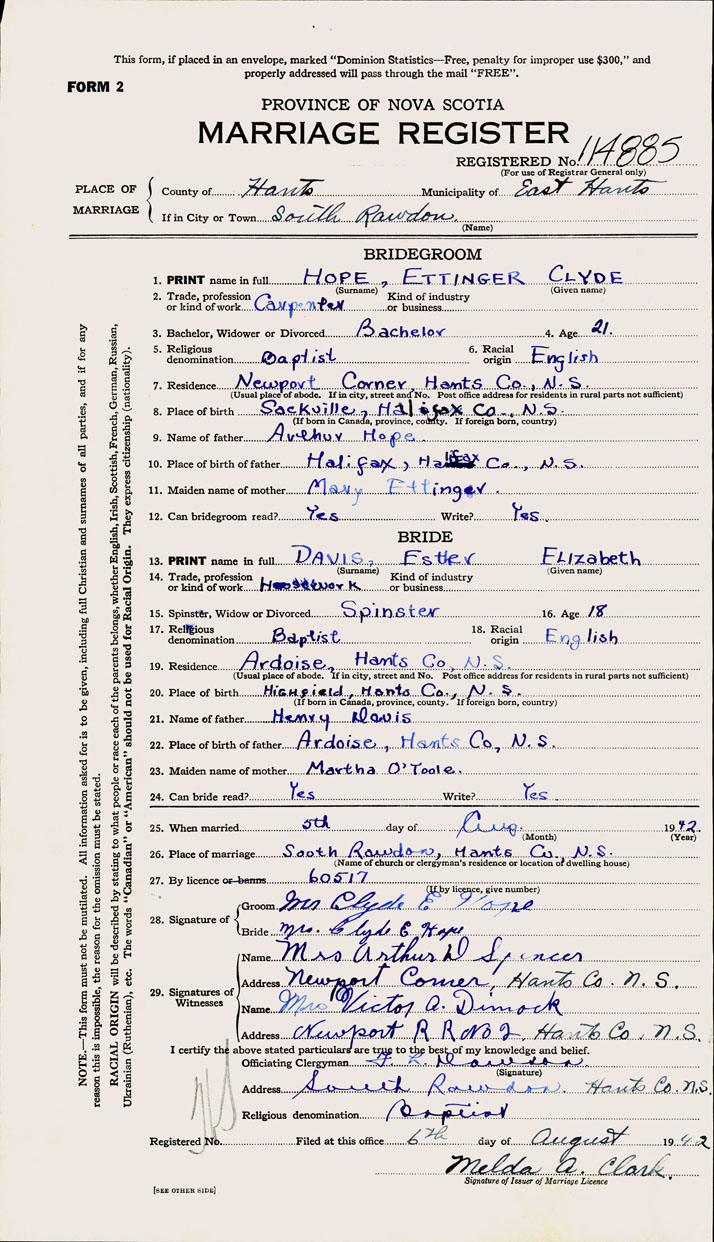 This form, if placed in an envelope, marked “Dominion Statistics—Free, penalty for improper use $300,” and
properly addressed will pass through the mail “FREE”.
FORM 2
PROVINCE OF NOVA SCOTIA
MARRIAGE REGISTER
REGISTERED No. 114885
(For use of Registrar General only)
PLACE OF MARRIAGE
County of Hants Municipality of East Hants
If in City or Town South Rawdon
(Name)
BRIDEGROOM
1. PRINT name in full HOPE, ETTINGER CLYDE
(Surname) (Given name)
2. Trade, profession or kind of work Carpenter Kind of industry or business
3. Bachelor, Widower or Divorced Bachelor 4. Age 21.
5. Religious denomination Baptist 6. Racial origin English
7. Residence Newport Corner, Hants Co., N.S.
(Usual place of abode. If in city, street and No. Post office address for residents in rural parts not sufficient)
8. Place of birth Sackville, Halifax Co., N.S.
(If born in Canada, province, county. If foreign born, country)
9. Name of father Arthur Hope
10. Place of birth of father Halifax, Halifax Co., N.S.
11. Maiden name of mother Mary Ettinger.
12. Can bridegroom read? Yes Write? Yes.
BRIDE
13. PRINT name in full DAVIS, Esther ELIZabeth
(Surname) (Given name)
14. Trade, profession or kind of work Housework Kind of industry or business
15. Spinster, Widow or Divorced Spinster 16. Age 18
17. Religious denomination Baptist 18. Racial origin English
19. Residence Ardoise, Hants Co., N.S.
(Usual place of abode. If in city, street and No. Post office address for residents in rural parts not sufficient)
20. Place of birth Highfield, Hants Co., N.S.
(If born in Canada, province, county. If foreign born, country)
21. Name of father Henry Davis
22. Place of birth of father Ardoise, Hants Co, N.S.
23. Maiden name of mother Martha O'Toole.
24. Can bride read? Yes Write? Yes
25. When married 5th day of Aug. 1942
(Month) (Year)
26. Place of marriage South Rawdon, Hants Co., N.S.
(Name of church or clergyman's residence or location of dwelling house)
27. By licence or banns 60517
(If by licence, give number)
28. Signature of
Groom Mr Clyde E Hope
Bride Mrs. Clyde E Hope
29. Signatures of Witnesses
Name Mrs Arthur D Spencer
Address Newport Corner, Hants Co. N.S.
Name Mrs Victor A. Dimock
Address Newport R R No 2, Hants Co. N.S.
I certify the above stated particulars are true to the best of my knowledge and belief.
Officiating Clergyman
(Signature)
Address South Rawdon. Hants Co. N.S.
Religious denomination Baptist
Registered No. Filed at this office 6th day of August 1942
Melda A. Clark.
Signature of Issuer of Marriage Licence
[SEE OTHER SIDE]
NOTE.—This form must not be mutilated. All information asked for is to be given, including full Christian and surnames of all parties, and if for any
reason this is impossible, the reason for the omission must be stated.
RACIAL ORIGIN will be described by stating to what people or race each of the parents belongs, whether English, Irish, Scottish, French, German, Russian,
Ukrainian (Ruthenian), etc. The words “Canadian” or “American” should not be used for Racial Origin. They express citizenship (nationality).